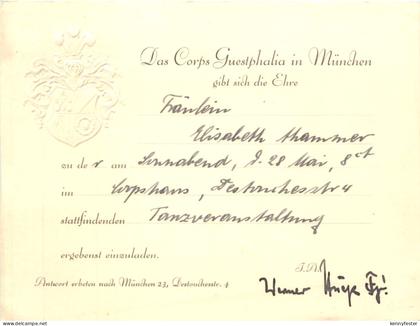 Das Corps Guestphalia in München
gibt sich die Ehre
Fräulein
Elisabeth Thammer
zu der am Sonnabend, d. 28 Mai, 8ct
im Corpshaus, Destouchesstr 4
stattfindenden Tanzveranstaltung
ergebenst einzuladen.
I.A.
Antwort erbeten nach München 23, Destouchestr. 4
Werner
© www.delcampe.net
kennyfester